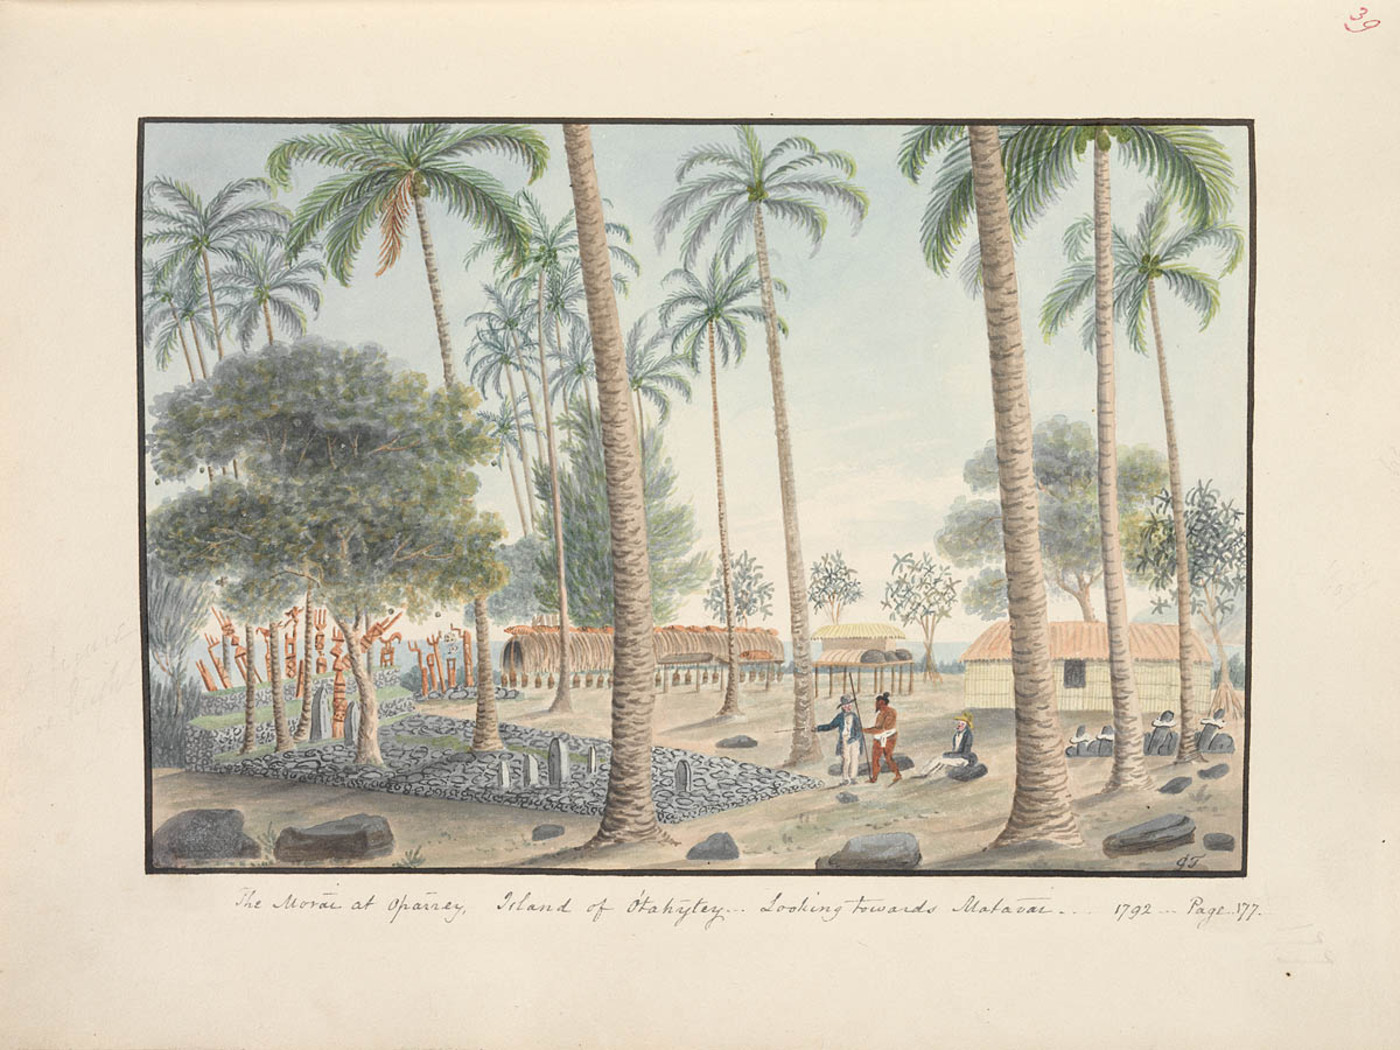 39
G T
The Morai at Oparrey, Island of Otahytey... Looking towards Matavai... 1792... Page 177.